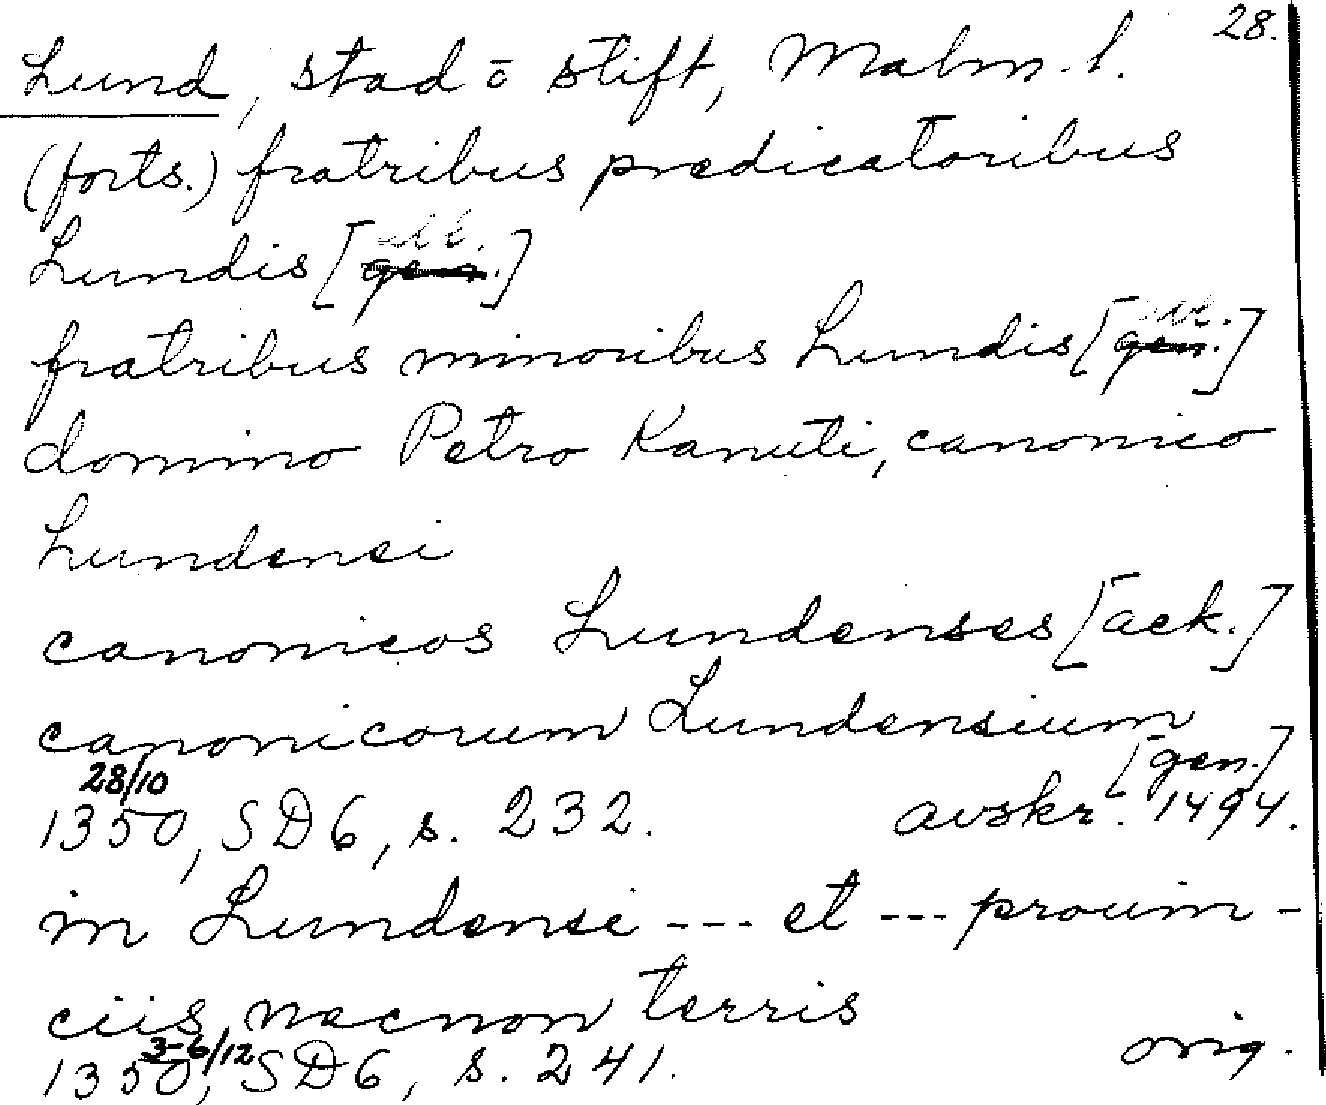 28.
Lund, stad o stift, Malm. l.
(forts.) fratribus predicatoribus
Lundis [abl.]
fratribus minoribus Lundis [abl.]
domino Petro Kanuti, canonico
Lundensi
canonicos Lundenses [ack.]
canonicorum Lundensium
[gen.]
28/10
1350, SD6, s. 232. avskr. 1494.
in Lundensi --- et --- prouin-
ciis, necnon terris
3-6/12
1350, SD6, s. 241. orig.